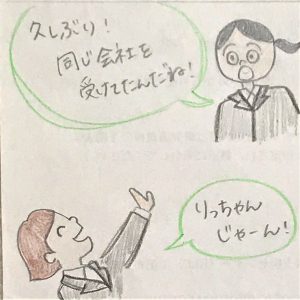 久しぶり!
同じ会社を
受けてたんだね!
りっちゃん
じゃーん!